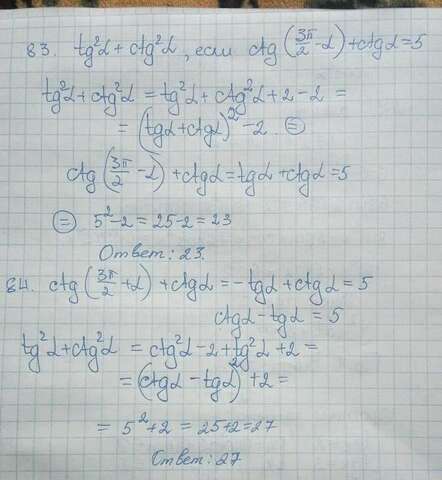 83. tg²α + ctg²α, если ctg(3π/2 - α) + ctgα = 5
tg²α + ctg²α = tg²α + ctg²α + 2 - 2 =
= (tgα + ctgα)² - 2 ⊜
ctg(3π/2 - α) + ctgα = tgα + ctgα = 5
⊜ 5² - 2 = 25 - 2 = 23
Ответ: 23.
84. ctg(3π/2 + α) + ctgα = -tgα + ctgα = 5
ctgα - tgα = 5
tg²α + ctg²α = ctg²α - 2 + tg²α + 2 =
= (ctgα - tgα)² + 2 =
= 5² + 2 = 25 + 2 = 27
Ответ: 27